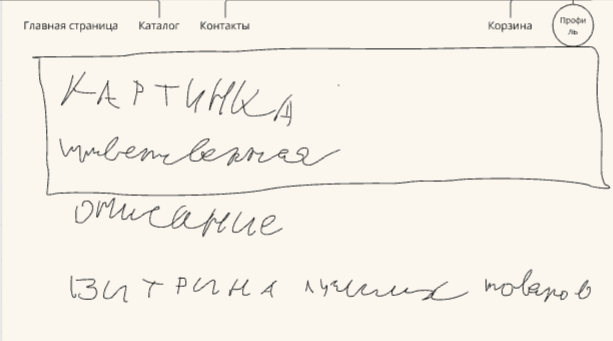 Главная страница Каталог Контакты Корзина Профиль
КАРТИНКА
приветственная
описание
ВИТРИНА лучших товаров